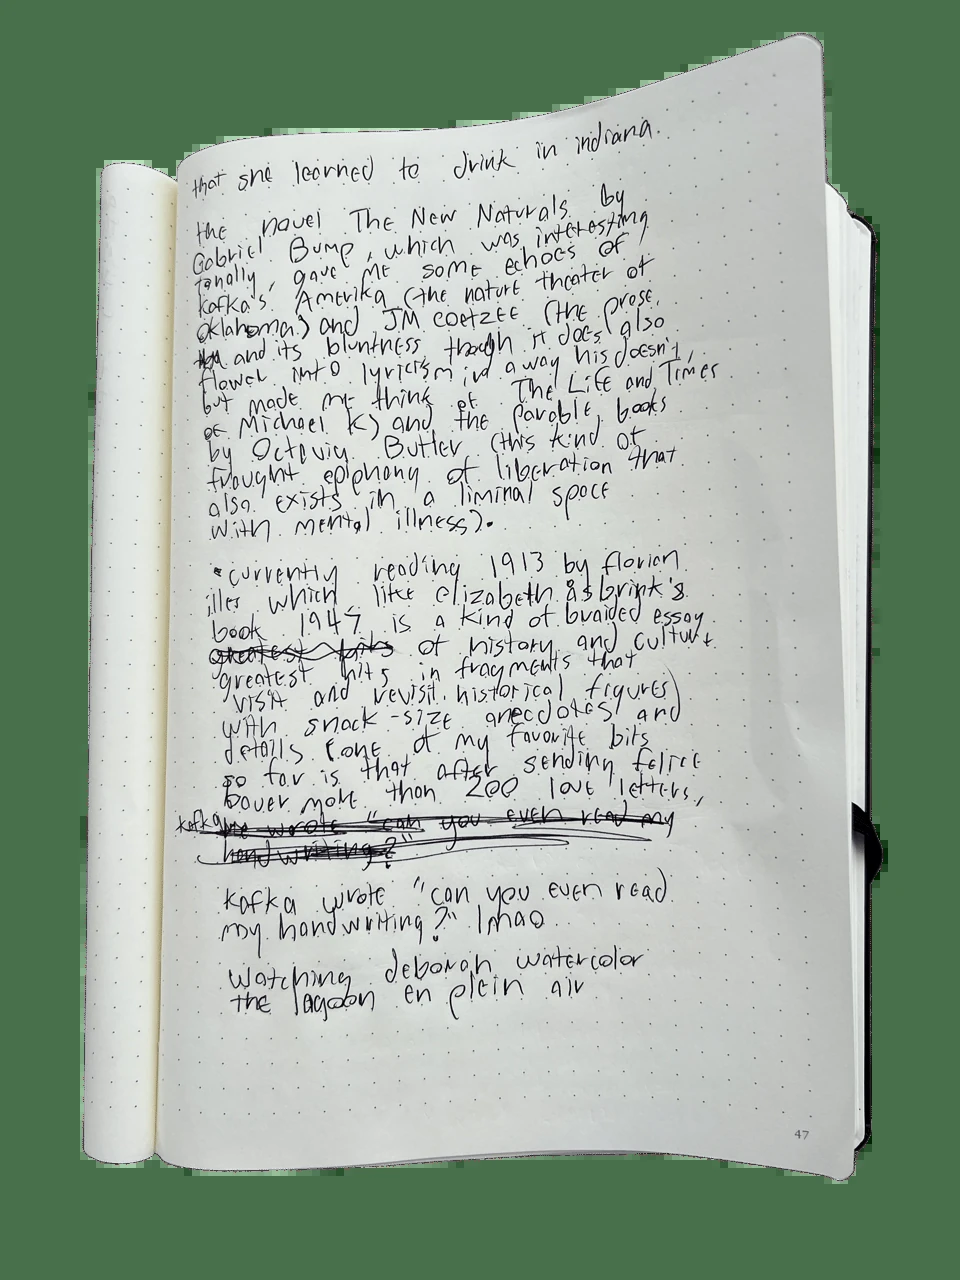 that she learned to drink in indiana.
the novel The New Naturals by
Gabriel Bump, which was interesting
tonally, gave me some echoes of
Kafka's Amerika (the nature theater of
oklahoma) and JM coetzee (the prose,
and its bluntness, though it does also
flower into lyricism in a way his doesn't,
but made me think of The Life and Times
of Michael K) and the parable books
by Octavia Butler (this kind of
fraught epiphany of liberation that
also exists in a liminal space
with mental illness).
•currently reading 1913 by florian
illes which like elizabeth åsbrink's
book 1947 is a kind of braided essay
greatest hits of history and culture
greatest hits in fragments that
visit and revisit historical figures
with snack-size anecdotes and
details (one of my favorite bits
so far is that after sending felice
bauer more than 200 love letters,
kafka he wrote "can you even read my
handwriting?"
kafka wrote "can you even read
my handwriting?" lmao
watching deborah watercolor
the lagoon en plein air
47